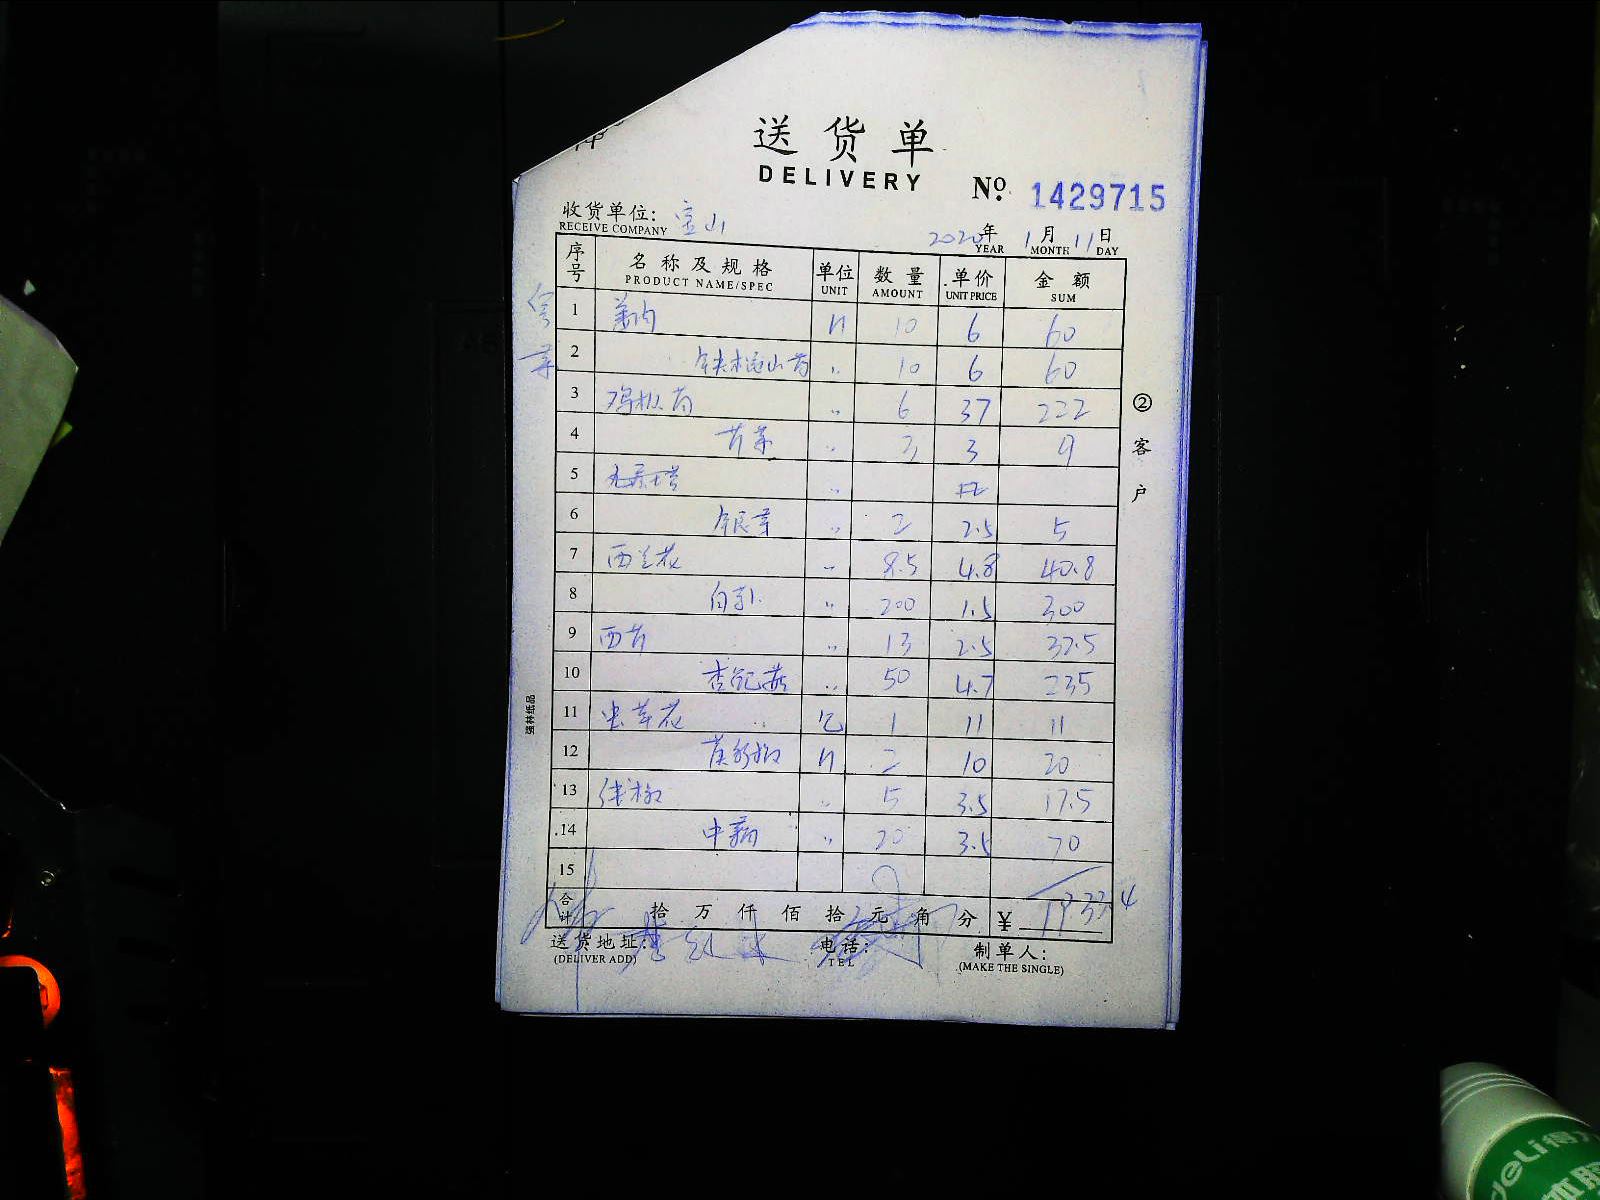 送货单
DELIVERY
No. 1429715
收货单位: 宝山
RECEIVE COMPANY
2020年 1月 11日
YEAR MONTH DAY
序号 名称及规格 单位 数量 单价 金额
PRODUCT NAME/SPEC UNIT AMOUNT UNIT PRICE SUM
1 10 6 60
2 铁棍山药 〃 10 6 60
3 鸡枞菌 〃 6 37 222
4 芹菜 〃 3 3 9
5 〃
6 银芽 〃 2 2.5 5
7 西兰花 〃 8.5 4.8 40.8
8 〃 200 1.5 300
9 西芹 〃 13 2.5 32.5
10 杏鲍菇 〃 50 4.7 235
11 虫草花 1 11 11
12 2 10 20
13 〃 5 3.5 17.5
14 〃 20 3.5 70
15
合计 拾 万 仟 佰 拾 元 角 分 ¥
送货地址: 电话: 制单人:
(DELIVER ADD) TEL (MAKE THE SINGLE)
②客户
强林纸品
deli得力